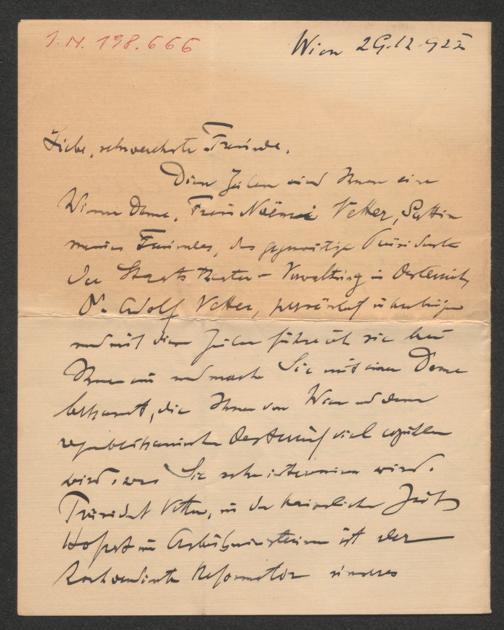 I.N. 198.666
Wien 29.12.922
Liebe, sehrverehrte Freunde.
Diese Zeilen wird Ihnen eine
Wiener Dame, Frau Noëmi Vetter, Gattin
meines Freundes, des gegenwärtigen Präsidenten
der Staatstheater-Verwaltung in Österreich,
Dr. Adolf Vetter, persönlich überbringen
und mit diesen Zeilen führe ich sie bei
Ihnen ein und mache Sie mit einer Dame
bekannt, die Ihnen von Wien und dem
republikanischen Oesterreich viel erzählen
wird, was Sie sehr interessieren wird.
Präsident Vetter, in der kaiserlichen Zeit
im Arbeitsministerium ist der
Reformator unseres